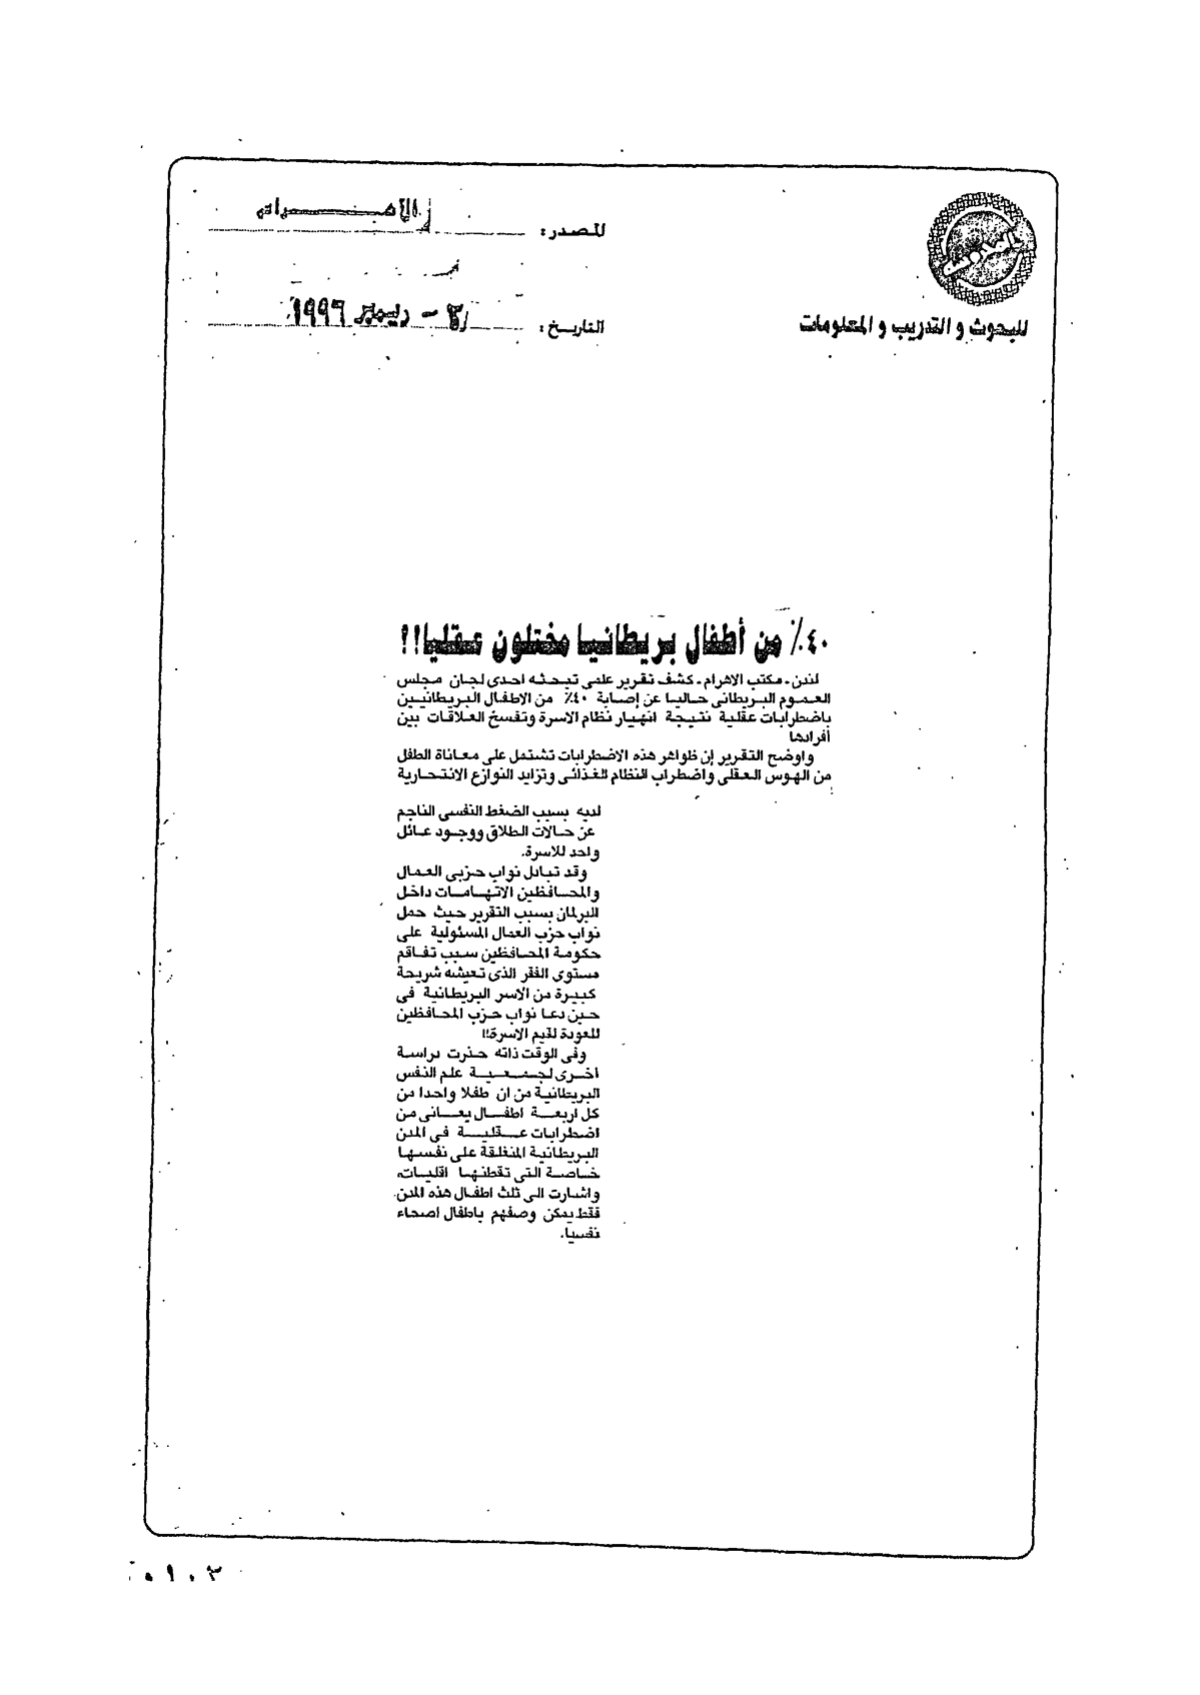 المصدر: الأهرام
للبحوث و التدريب و المعلومات
التاريخ: ٣ - ديسمبر ١٩٩٦
٤٠٪ من أطفال بريطانيا مختلون عقليا!!
لندن ـ مكتب الاهرام ـ كشف تقرير علمى تبحثه احدى لجان مجلس
العموم البريطانى حاليا عن إصابة ٤٠٪ من الاطفال البريطانيين
باضطرابات عقلية نتيجة انهيار نظام الاسرة وتفسخ العلاقات بين
أفرادها
واوضح التقرير إن ظواهر هذه الاضطرابات تشتمل على معاناة الطفل
من الهوس العقلى واضطراب النظام الغذائى وتزايد النوازع الانتحارية
لديه بسبب الضغط النفسى الناجم
عن حالات الطلاق ووجود عائل
واحد للاسرة.
وقد تبادل نواب حزبى العمال
والمحافظين الاتهامات داخل
البرلمان بسبب التقرير حيث حمل
نواب حزب العمال المسئولية على
حكومة المحافظين سبب تفاقم
مستوى الفقر الذى تعيشه شريحة
كبيرة من الاسر البريطانية فى
حين دعا نواب حزب المحافظين
للعودة لقيم الاسرة!!
وفى الوقت ذاته حذرت دراسة
اخرى لجمعية علم النفس
البريطانية من ان طفلا واحدا من
كل اربعة اطفال يعانى من
اضطرابات عقلية فى المدن
البريطانية المنغلقة على نفسها
خاصة التى تقطنها اقليات،
واشارت الى ثلث اطفال هذه المدن
فقط يمكن وصفهم باطفال اصحاء
نفسيا.